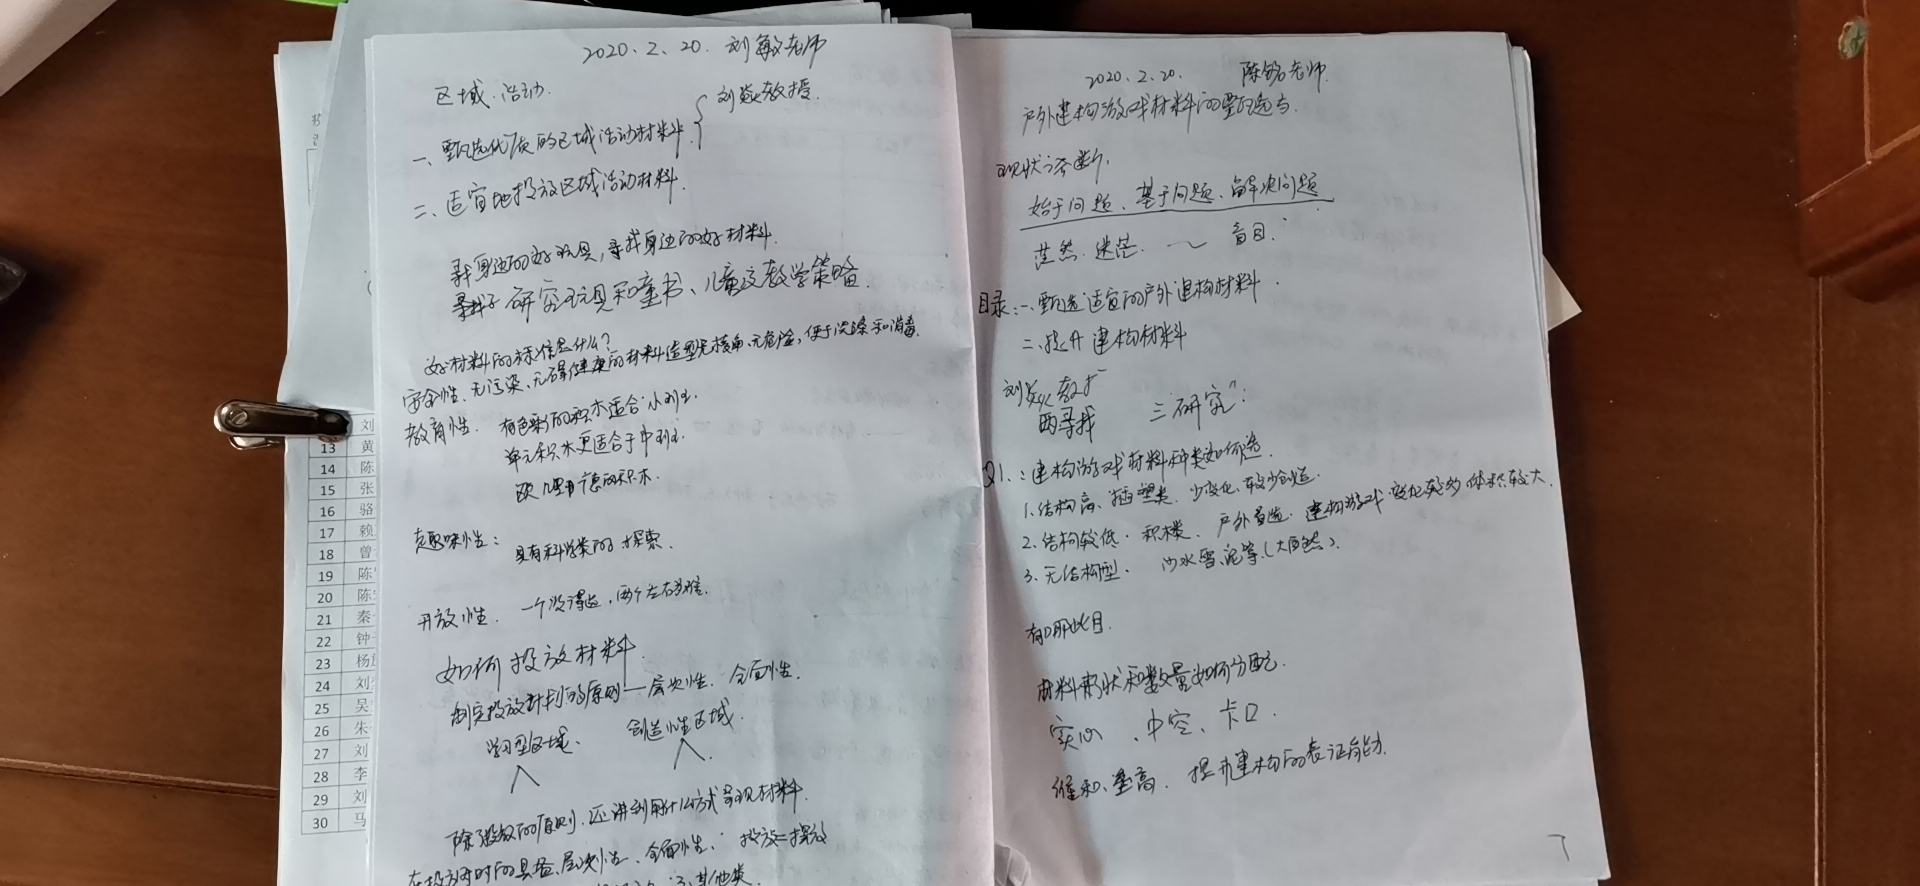 2020.2.20. 刘敏老师
区域活动.
刘焱教授.
一、甄选优质的区域活动材料.
二、适宜地投放区域活动材料.
寻找身边的好玩具,寻找身边的好材料.
研究玩具和童书、儿童文教学策略.
好材料的标准是什么?
安全性、无污染、健康的材料造型无棱角、无危险,便于洗涤和消毒.
教育性. 有色彩的积木适合小班.
单元积木更适合于中班.
积木.
趣味性: 具有科学类的探索.
开放性. 一个没得选,两个左右为难.
如何投放材料.
制定投放计划的原则—层次性、全面性.
学习型区域. 创造性区域.
除了投放的原则,还讲到用什么方式呈现材料.
层次性、全面性.
其他类.
2020.2.20. 陈铭老师.
户外建构游戏材料的甄选与
现状诊断.
始于问题、基于问题、解决问题
茫然、迷茫. 盲目.
目录:一、甄选适宜的户外建构材料.
二、提升建构材料
刘焱教授
两寻找 三研究:
Q1.:建构游戏材料种类如何选.
1.结构高、插塑类. 少变化、较少创造.
2.结构较低. 积木类. 户外首选. 建构游戏变化较多 体积较大.
3.无结构型. 沙水雪泥等.(大自然).
有哪些
材料形状和数量如何分配.
实心、中空、卡口.
垒高. 提升建构的表征能力.
13 黄
14 陈
15 张
16 骆
17 赖
18 曾
19 陈
20 陈
21 秦
22 钟
23 杨
24 刘
25 吴
26 朱
27 刘
28 李
29 刘
30 马